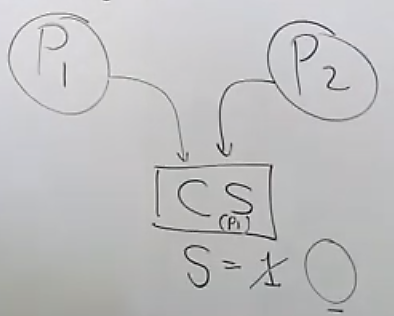 P1
P2
CS
(P1)
S = 1 0